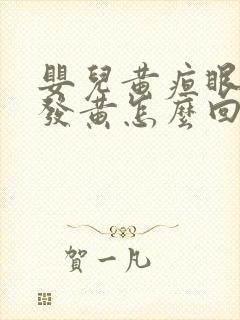 嬰兒黃疸眼
發黃怎麼回
賀一凡